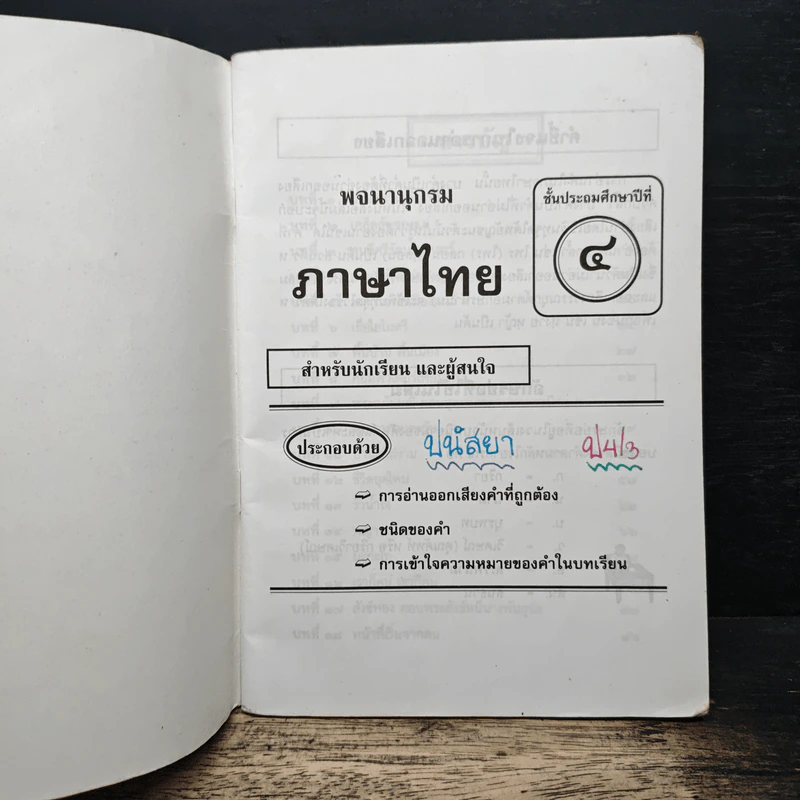 พจนานุกรม
ภาษาไทย
ชั้นประถมศึกษาปีที่
๔
สำหรับนักเรียน และผู้สนใจ
ประกอบด้วย ปนัสยา ป4/3
การอ่านออกเสียงคำที่ถูกต้อง
ชนิดของคำ
การเข้าใจความหมายของคำในบทเรียน